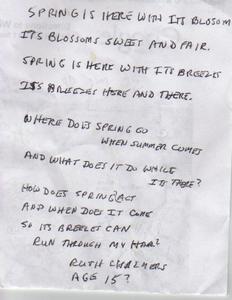 SPRING IS HERE WITH ITS BLOSOM
ITS BLOSSOMS SWEET AND FAIR.
SPRING IS HERE WITH ITS BREEZES
ITS BREEZES HERE AND THERE.
WHERE DOES SPRING GO
WHEN SUMMER COMES
AND WHAT DOES IT DO WHILE
ITS THERE?
HOW DOES SPRING ACT
AND WHEN DOES IT COME
SO ITS BREEZES CAN
RUN THROUGH MY HAIR?
RUTH CHALMERS
AGE 15?